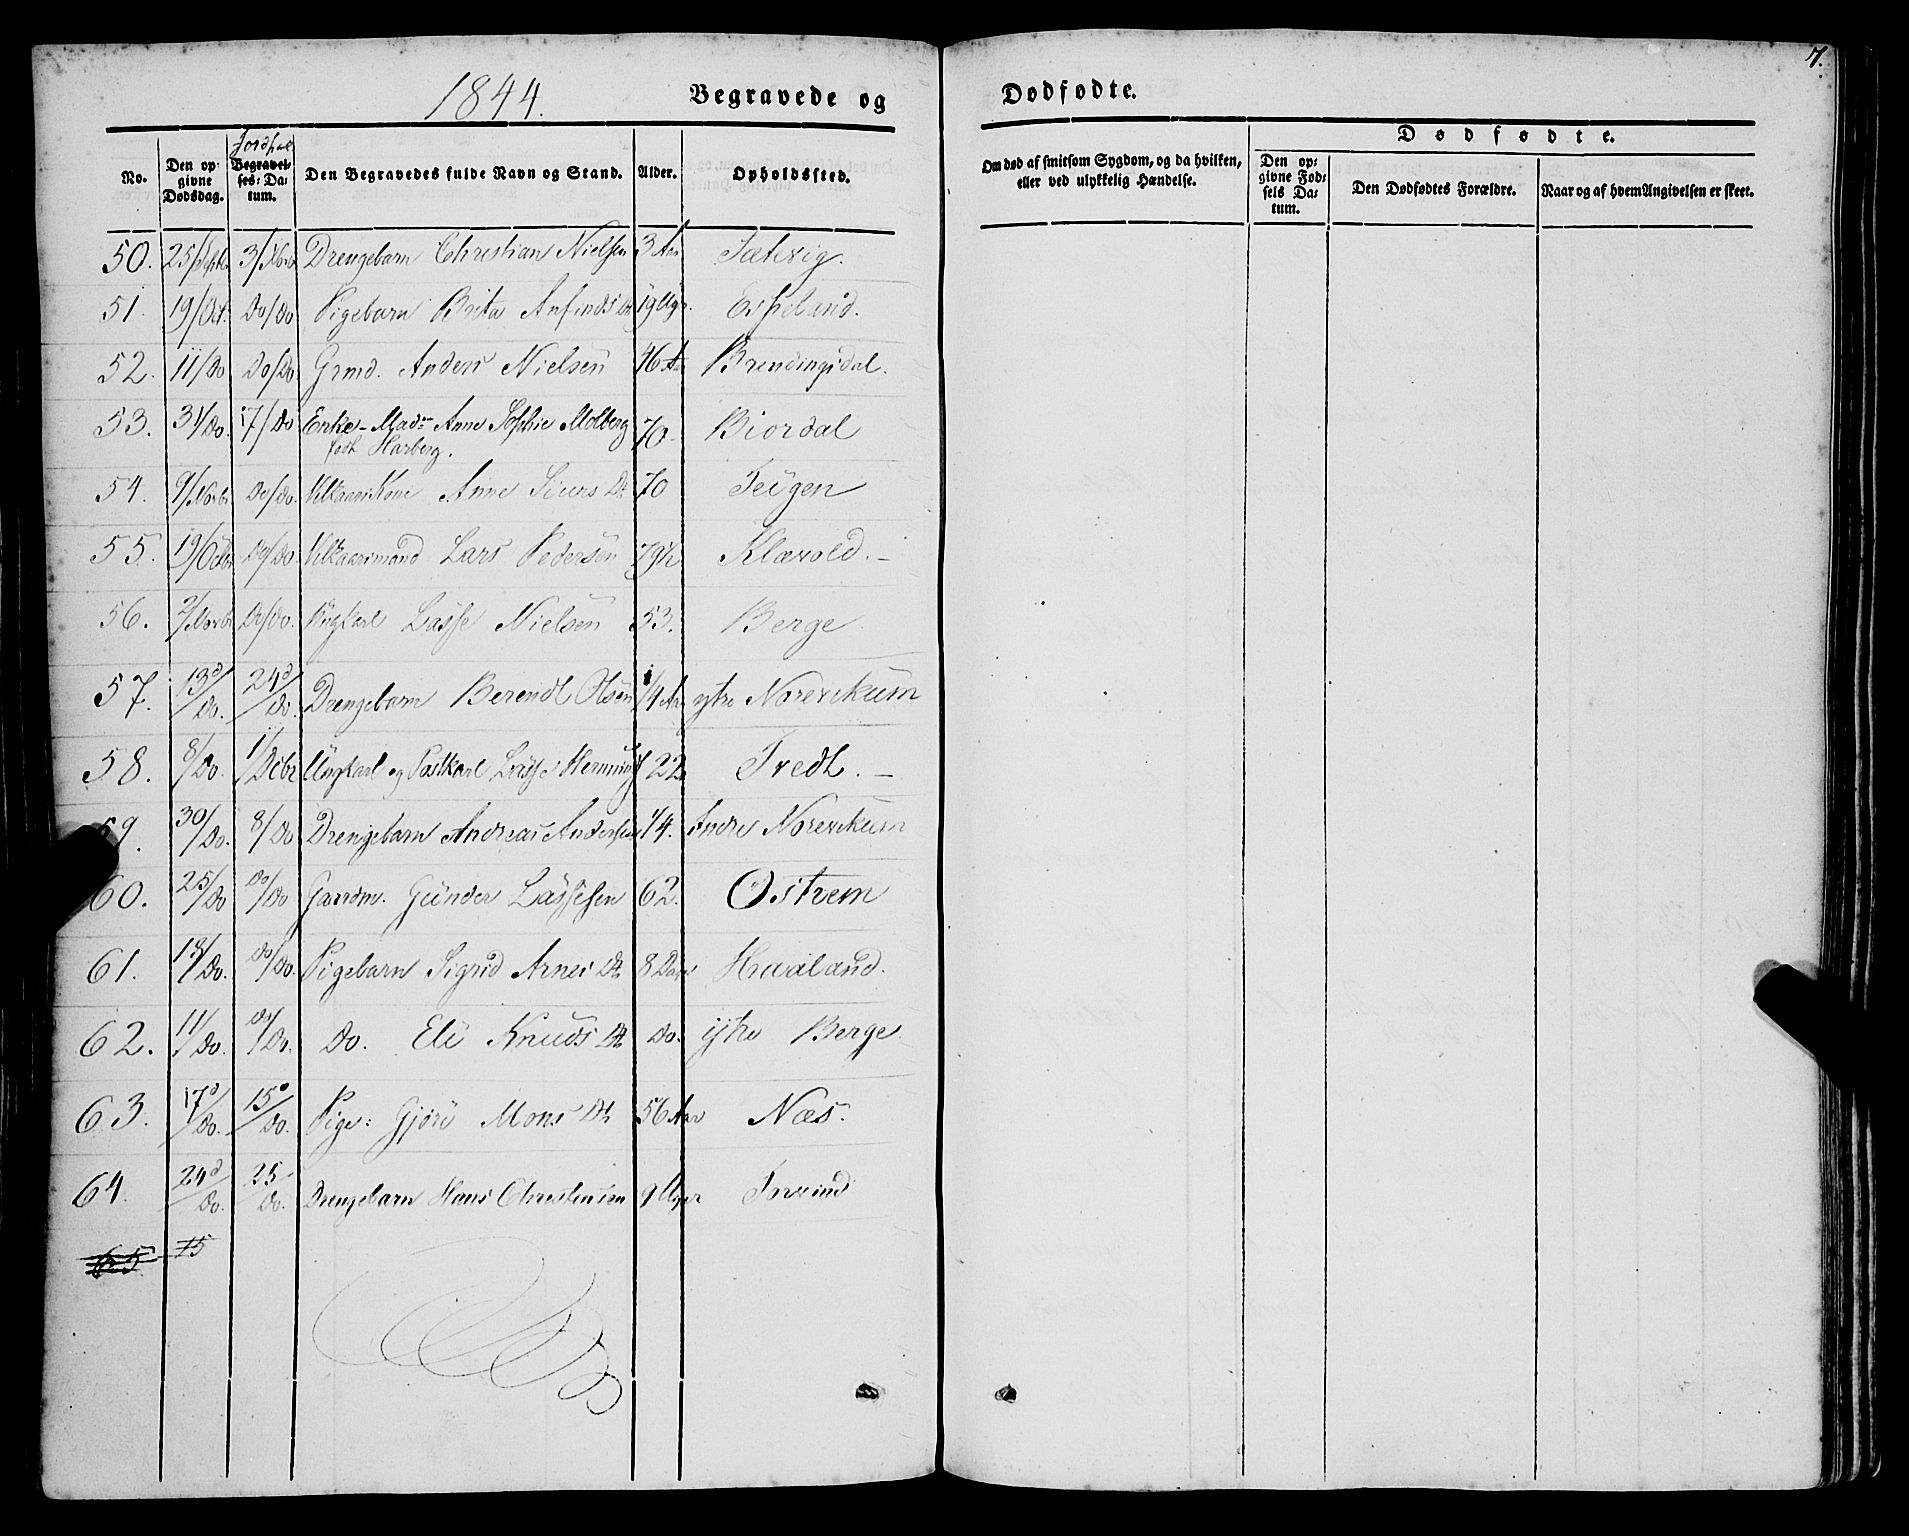 7.
1844. Begravede og Dødfødte.
No. Den opgivne Dødsdag. Jordfæst Begravelses-Datum. Den Begravedes fulde Navn og Stand. Alder. Opholdssted.
Om død af smitsom Sygdom, og da hvilken, eller ved ulykkelig Hændelse.
Dødfødte.
Den opgivne Fødsels Datum. Den Dødfødtes Forældre. Naar og af hvem Angivelsen er skeet.
50. 25/Septbr 3/Novb Drengebarn Christian Nielsen 3 Aar Sætvig.
51. 19/Oct. Do/Do Pigebarn Brita Anfinds Dt 19 Uger. Espeland.
52. 11/Do Do/Do. Grmd. Anders Nielsen 46 Aa Brendingsdal.
53. 31/Do. 17/Do Enke-Madm Anne Sophie Molberg 70 Biordal
født Harberg.
54. 9/Novbr Do/Do. Vilkaars Kone Anne Siurs Dt 70 Teigen
55. 19/Octbr Do/Do. Vilkaarsmand Lars Pedersen 79½ Klævold. -
56. 2/Novbr Do/Do. Ungkarl Lasse Nielsen 53. Berge.
57. 13d/Do. 24d/Do. Drengebarn Berendt Olsen 1/4 Aar ytre Norevikum
58. 8/Do. 1/Dcbr Ungkarl og Postkarl Lasse Hemmings 22 Tredt. -
59. 30/Do. 8/Do Drengebarn Andreas Andersen 1/4. Indre Norevikum
60. 25/Do Do/Do Gaardm. Gunder Lassesen 62. Ostrem
61. 18/Do. Do/Do. Pigebarn Sigrid Arnes Dt 8 Dage Haaland.
62. 11/Do. Do/Do. Do. Eli Knuds Dt Do. ytre Berge.
63. 17d/Do. 15/Do. Pige: Gjøri Mons Dt 56 Aar Næs.
64. 24d/Do. 25/Do. Drengebarn Hans Christensen 9 Uger Torvund
65 15